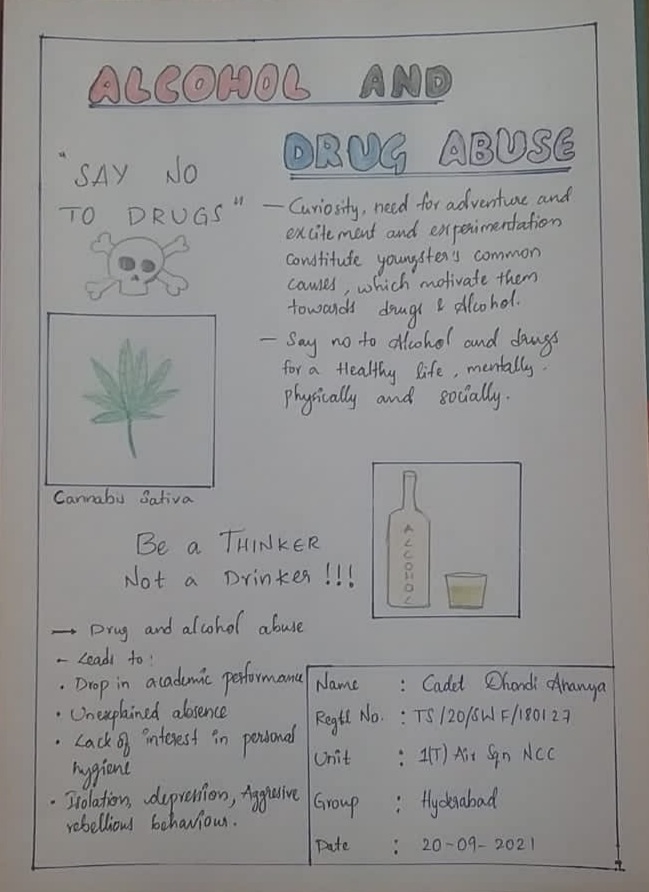 ALCOHOL AND
DRUG ABUSE
"SAY NO
TO DRUGS"
— Curiosity, need for adventure and
excitement and experimentation
constitute youngster's common
causes, which motivate them
towards drugs & Alcohol.
— Say no to Alcohol and drugs
for a Healthy life, mentally.
physically and socially.
Cannabis Sativa
Be a THINKER
Not a Drinker !!!
ALCOHOL
→ Drug and alcohol abuse
– Leads to:
• Drop in academic performance
• Unexplained absence
• Lack of interest in personal
hygiene
• Isolation, depression, Aggresive
rebellious behaviour.
Name : Cadet Dhondi Ananya
Regtl No. : TS/20/SWF/180127
Unit : 1(T) Air Sqn NCC
Group : Hyderabad
Date : 20-09-2021